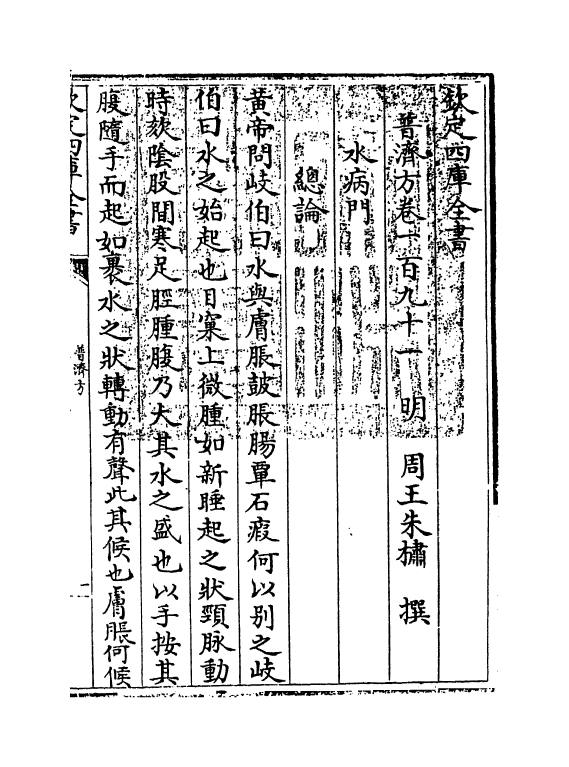 欽定四庫全書
普濟方卷一百九十一　明　周王朱橚　撰
水病門
總論
黄帝問岐伯曰水與膚脹鼓脹腸覃石瘕何以别之岐
伯曰水之始起也目窠上微腫如新睡起之狀頸脉動
時欬陰股間寒足脛腫腹乃大其水之盛也以手按其
腹隨手而起如裹水之狀轉動有聲此其候也膚脹何候
欽定四庫全書
普濟方
一